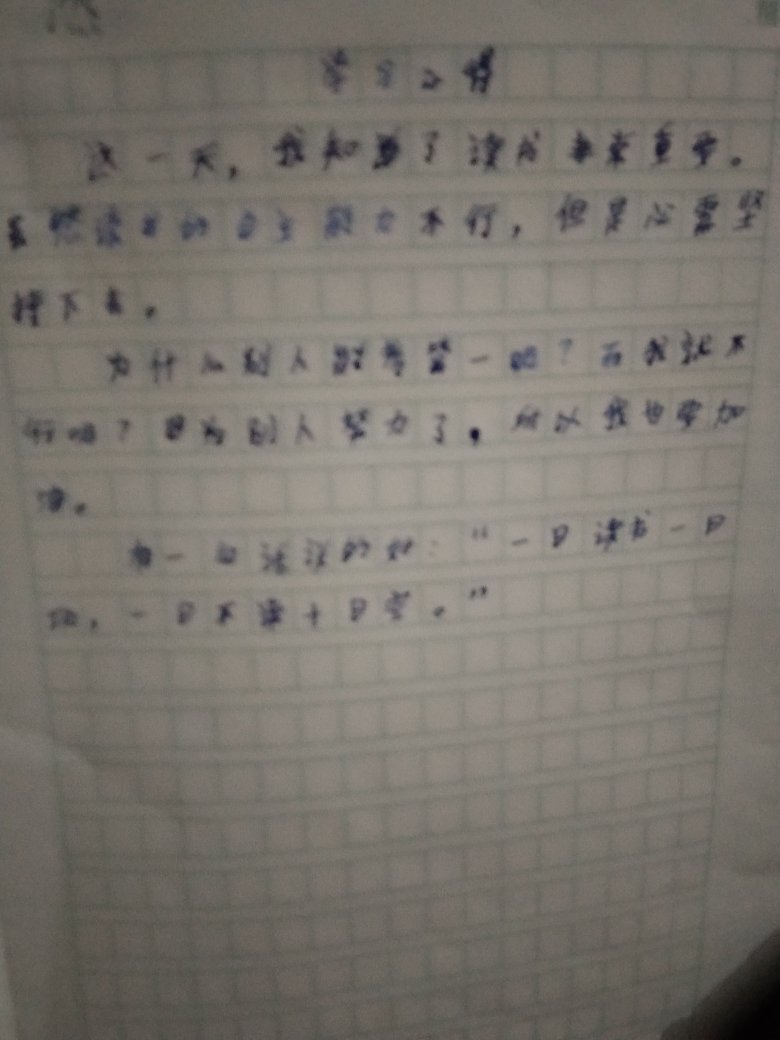 学习心得
这一天，我知道了读书非常重要。
虽然读书的自主能力不行，但是必需坚
持下去。
为什么别人能考第一呢？而我就不
行呢？因为别人努力了，所以我也要加
油。
有一句话说的好：“一日读书一日
功，一日不读十日空。”